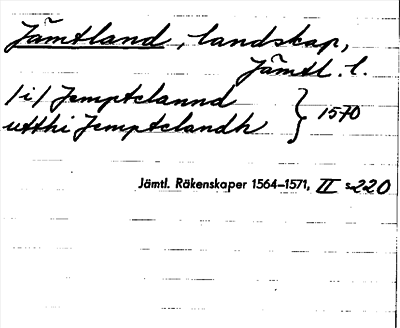 Jämtland, landskap,
Jämtl. l.
/i/ Jemptelannd
utthi Jemptelandh } 1570
Jämtl. Räkenskaper 1564–1571, II s. 220